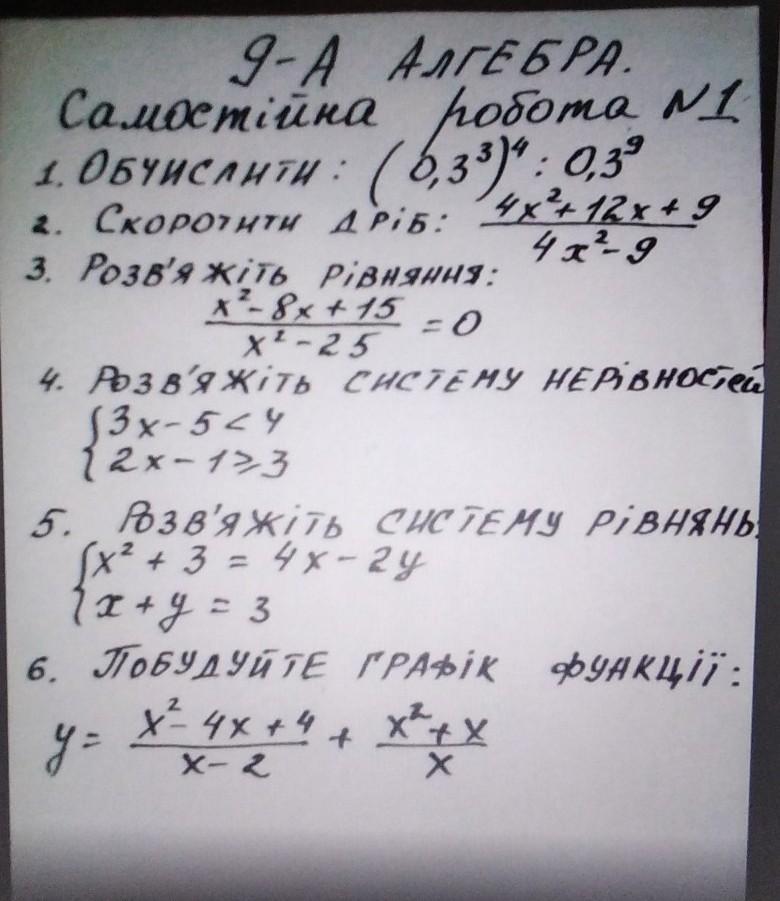 9-А АЛГЕБРА.
Самостійна робота №1
1. ОБЧИСЛИТИ: (0,3³)⁴ : 0,3⁹
2. СКОРОТИТИ ДРІБ: (4x²+12x+9)/(4x²-9)
3. РОЗВ'ЯЖІТЬ РІВНЯННЯ:
(x²-8x+15)/(x²-25) = 0
4. РОЗВ'ЯЖІТЬ СИСТЕМУ НЕРІВНОСТЕЙ
{3x-5<4
{2x-1⩾3
5. РОЗВ'ЯЖІТЬ СИСТЕМУ РІВНЯНЬ:
{x²+3=4x-2y
{x+y=3
6. ПОБУДУЙТЕ ГРАФІК ФУНКЦІЇ:
y= (x²-4x+4)/(x-2) + (x²+x)/x